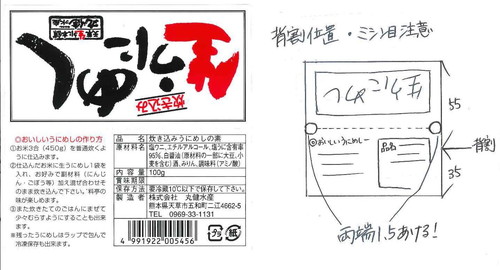 生うにめし
炊き込み
◎おいしいうにめしの作り方
①お米3合（450g）を普通炊く
ように仕込みます。
②仕込んだお米に生うにめし1袋を
入れ、お好みで副材料（にんじ
ん・ごぼう等）加え混ぜ合わせそ
のまま炊き込んで下さい。"料亭の
味が楽しめます。
③また炊きたてのごはんにまぜて
少々むらすようにすることも出来
ます。
※残ったうにめしはラップで包んで
冷凍保存も出来ます。
品名 炊き込みうにめしの素
原材料名 塩ウニ、エチルアルコール、塩うに含有率
95%、白醤油（原材料の一部に大豆、小
麦を含む）酒、みりん、調味料（アミノ酸）
内容量 100g
賞味期限
保存方法 要冷蔵10℃以下で保存して下さい。
製造者 株式会社 丸健水産
熊本県天草市五和町二江4662-5
TEL 0969-33-1131
4 991922 005456
プラ
紙
背割位置・ミシン目注意
生うにめし
◎おいしいうにめし
品名
55
背割
35
両端1.5あける!